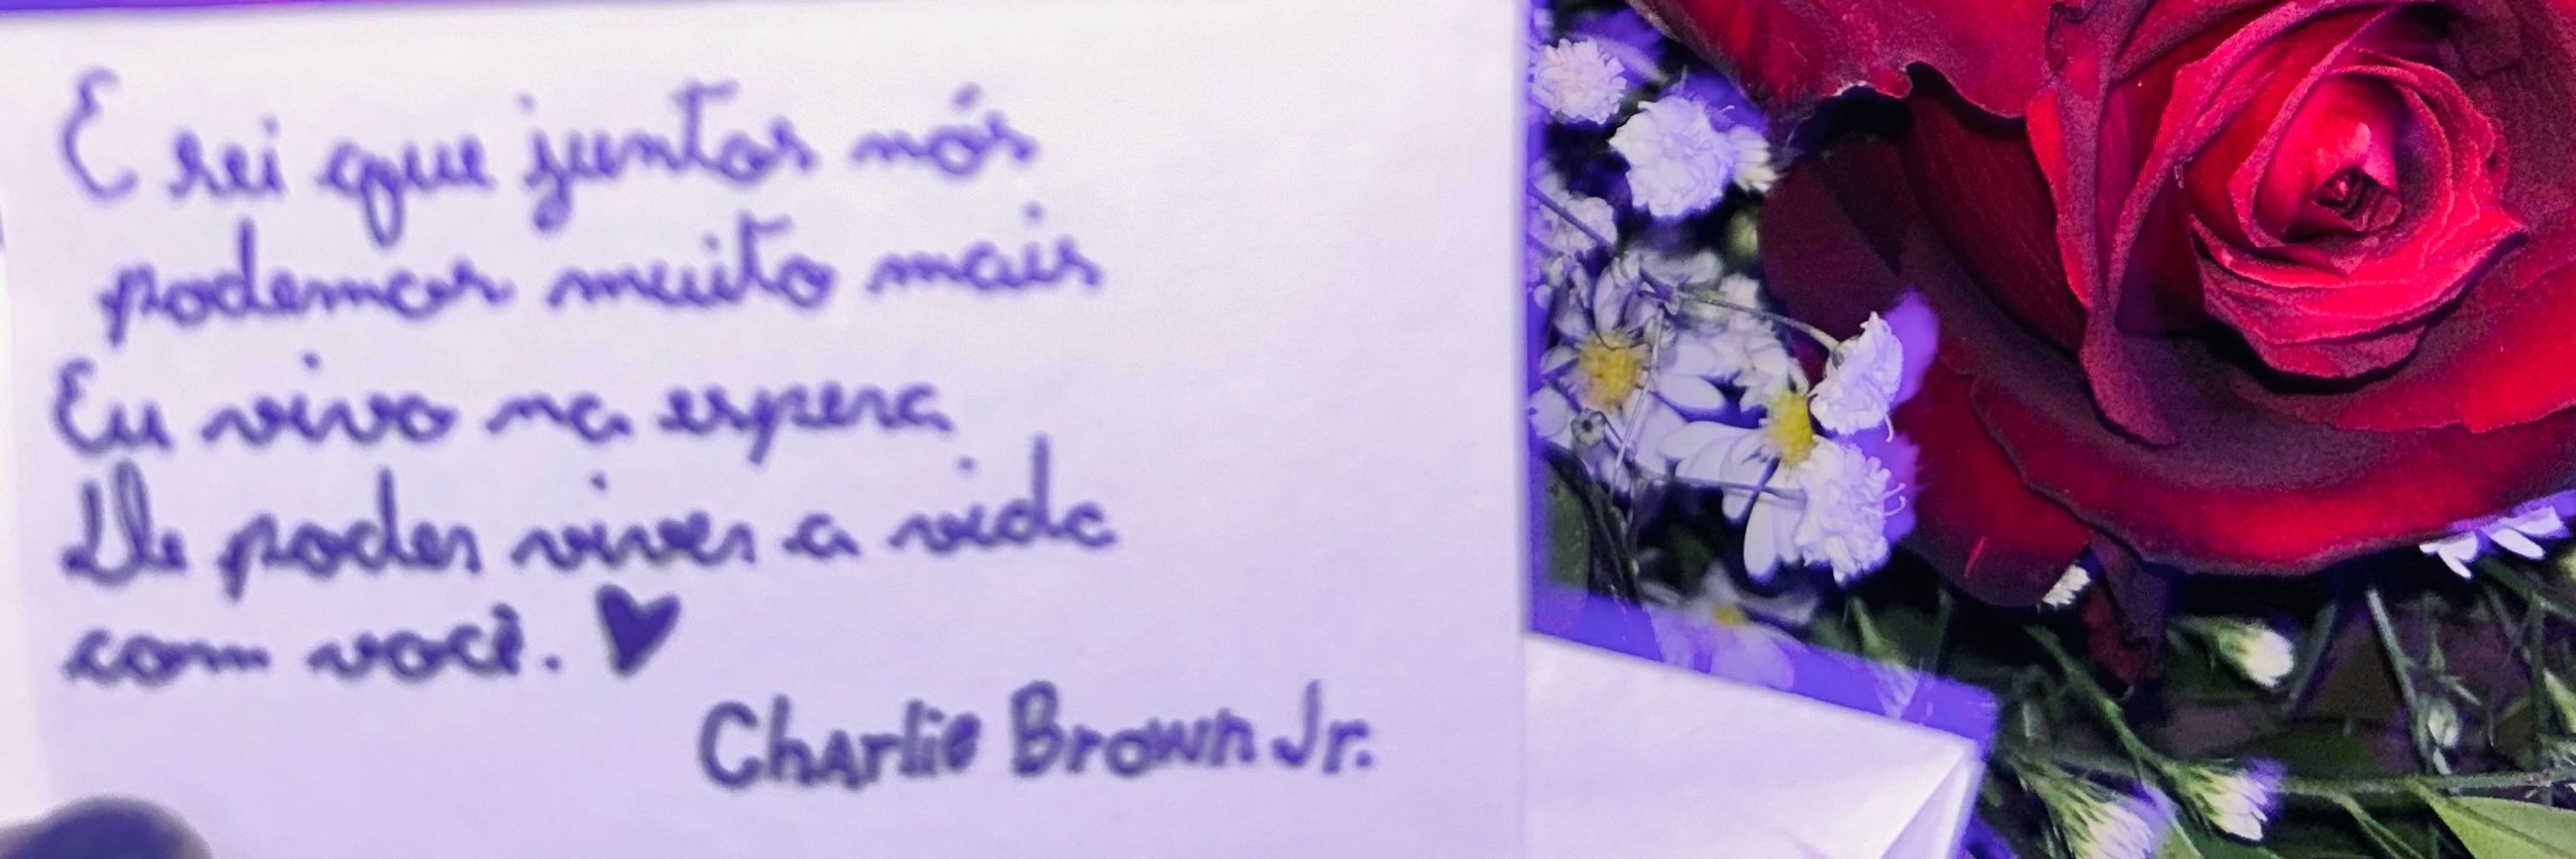 E sei que juntos nós
podemos muito mais
Eu vivo na espera
De poder viver a vida
com você. ♥
Charlie Brown Jr.